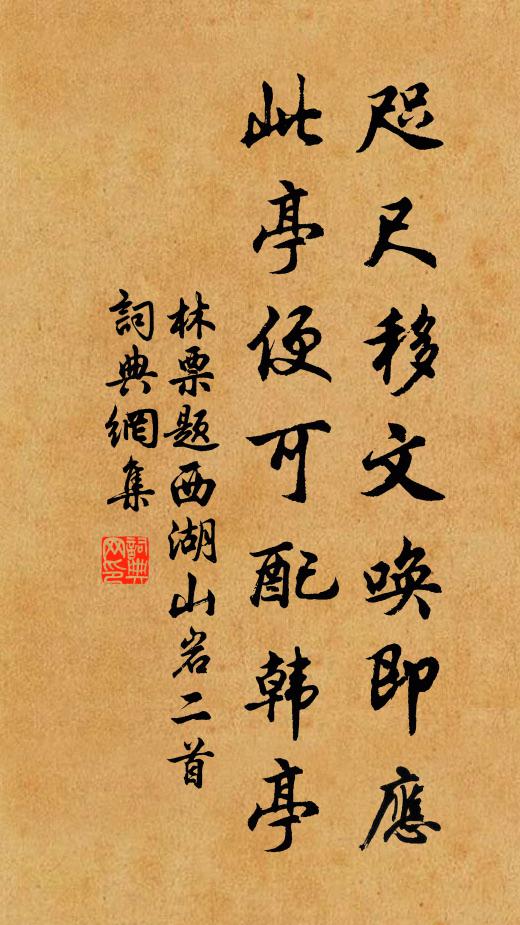 咫尺移文唤即應
此亭便可配韩亭
林栗题西湖山岩二首
詞典網集
詞典
网印